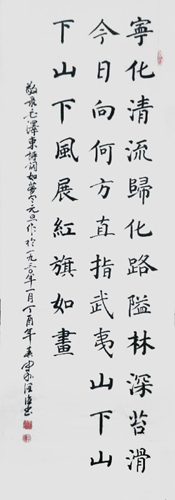 寧化清流歸化路隘林深苔滑
今日向何方直指武夷山下山
下山下風展紅旗如畫
敬录毛澤東詩詞如夢令元旦作於一九三〇年一月丁酉年